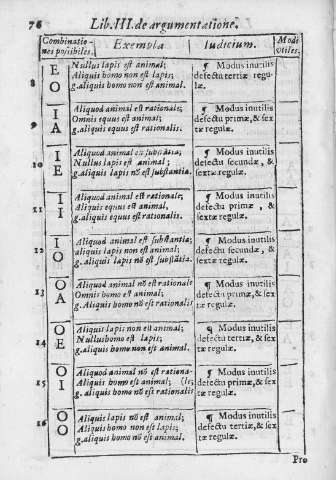 76 Lib. III. de argumentatione.
Combinatio- Exempla Iudicium. Modi
nes possibiles. utiles.
8 E Nullus lapis est animal; ¶ Modus inutilis
O Aliquis homo non est lapis; defectu tertiæ regu-
g. aliquis homo non est animal. læ.
9 I Aliquod animal est rationale; ¶ Modus inutilis
A Omnis equus est animal; defectu primæ, & sex
g. aliquis equus est rationalis. tæ regulæ.
10 I Aliquod animal est substātia; ¶ Modus inutilis
E Nullus lapis est animal; defectu secundæ, &
g. aliquis lapis nō est substantia. sextæ regulæ.
11 I Aliquod animal est rationale; ¶ Modus inutilis
I Aliquis equus est animal; defectu primæ, &
g. aliquis equus est rationalis. sextæ regulæ.
12 I Aliquod animal est substantia; ¶ Modus inutilis
O aliquis lapis non est animal; defectu secundæ, &
g. Aliquis lapis nō est substātia. sextæ regulæ.
13 O Aliquod animal nō est rationale ¶ Modus inutilis
A Omnis homo est animal; defectu primæ, & sex
g. Aliquis homo nō est rationalis tæ regulæ.
14 O Aliquis lapis non est animal; ¶ Modus inutilis
E Nullus homo est lapis; defectu tertiæ, & sex
g. Aliquis homo non est animal. tæ regulæ.
15 O Aliquod animal nō est rationa- ¶ Modus inutilis
I Aliquis homo est animal; (le; defectu primæ, & sex
g. aliquis homo nō est rationalis tæ regulæ.
16 O Aliquis lapis nō est animal; ¶ Modus inutilis
O Aliquis homo non est lapis; defectu tertiæ, & sex
g. Aliquis homo nō est animal. tæ regulæ.
Pro